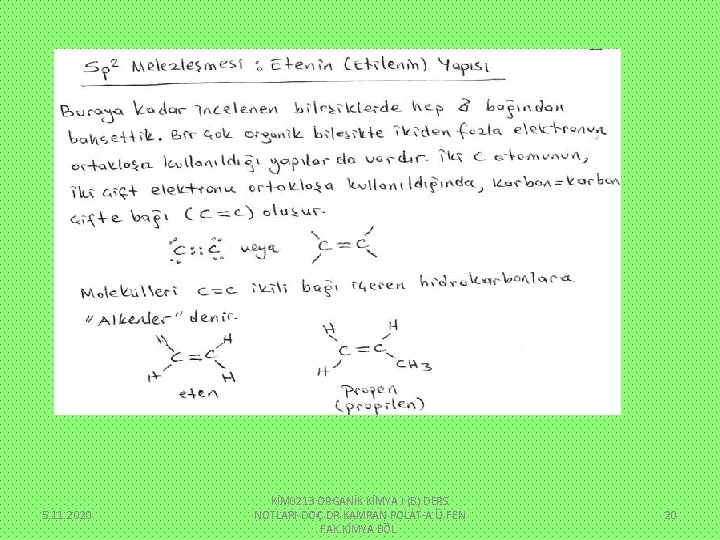 Sp² Melezleşmesi : Etenin (Etilenin) Yapısı
Buraya kadar incelenen bileşiklerde hep σ bağından
bahsettik. Bir çok organik bileşikte ikiden fazla elektronun
ortaklaşa kullanıldığı yapılar da vardır. İki C atomunun,
iki çift elektronu ortaklaşa kullanıldığında, karbon=karbon
çifte bağı (C=C) oluşur.
C::C veya C=C
Molekülleri C=C ikili bağı içeren hidrokarbonlara
"Alkenler" denir.
H H H H
C=C C=C
H H H CH3
eten Propen
(propilen)
5.11.2020
KİM0213 ORGANİK KİMYA I (B) DERS
NOTLARI-DOÇ.DR.KAMRAN POLAT-A.Ü.FEN
FAK.KİMYA BÖL
20